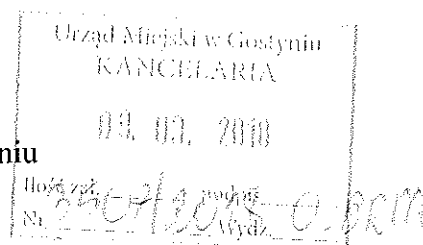 Urząd Miejski w Gostyniu
KANCELARIA
09. 03. 2018
niu
Ilość zał. podpis
Nr Wydz.